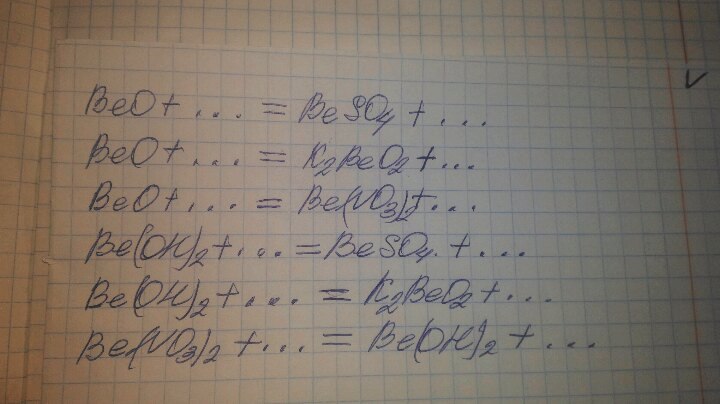 BeO + ... = BeSO4 + ...
BeO + ... = K2BeO2 + ...
BeO + ... = Be(NO3)2 + ...
Be(OH)2 + ... = BeSO4. + ...
Be(OH)2 + ... = K2BeO2 + ...
Be(NO3)2 + ... = Be(OH)2 + ...